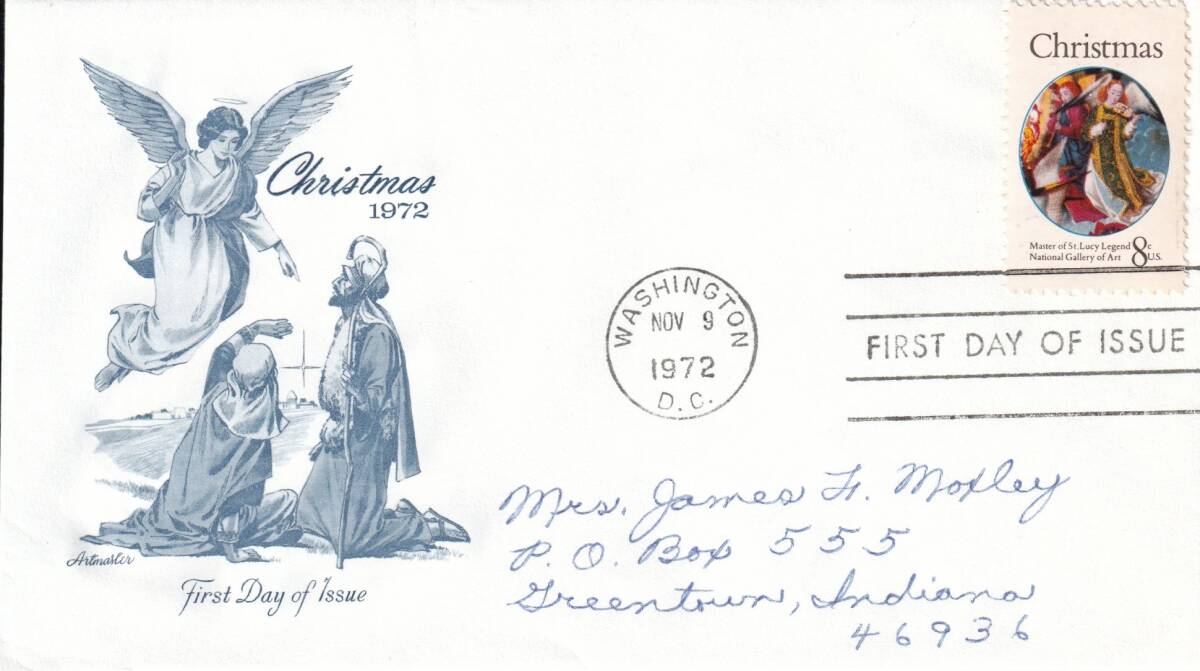 Christmas
1972
Artmaster
First Day of Issue
Christmas
Master of St. Lucy Legend
National Gallery of Art
8c
U.S.
WASHINGTON
NOV 9
1972
D.C.
FIRST DAY OF ISSUE
Mrs. James F. Moxley
P. O. Box 555
Greentown, Indiana
46936